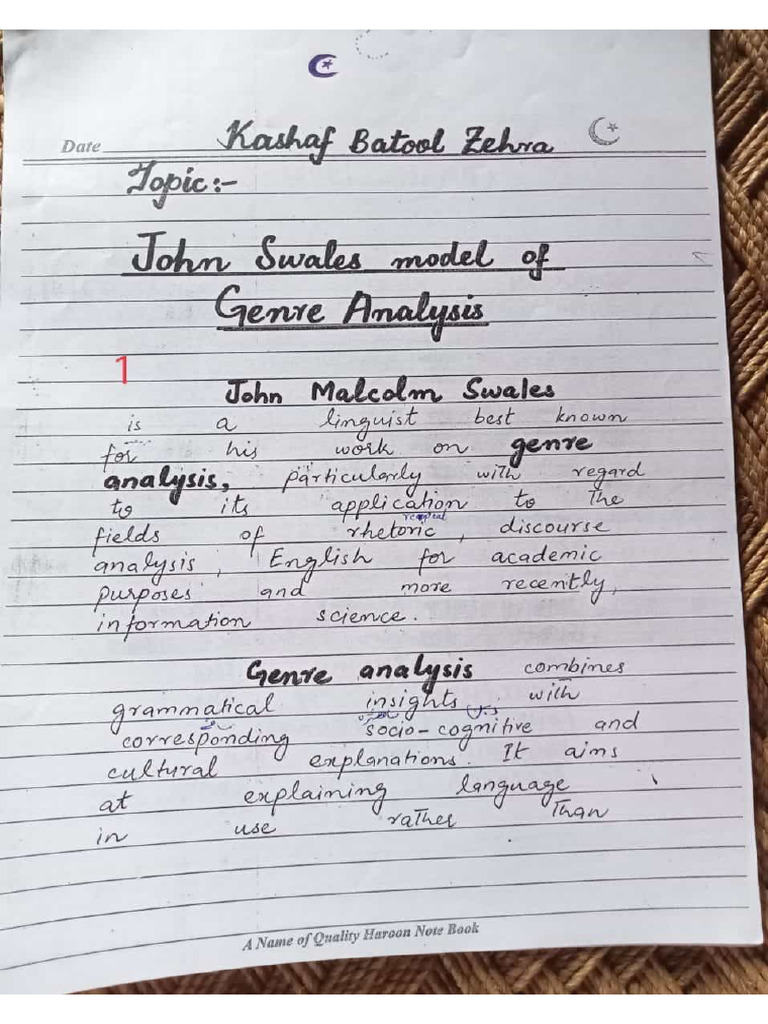 Date Kashaf Batool Zehra
Topic:-
John Swales model of
Genre Analysis
1
John Malcolm Swales
is a linguist best known
for his work on genre
analysis, particularly with regard
to its application to the
fields of rhetoric, discourse
analysis, English for academic
purposes and more recently,
information science.
Genre analysis combines
grammatical insights with
corresponding socio-cognitive and
cultural explanations. It aims
at explaining language
in use rather than
A Name of Quality Haroon Note Book